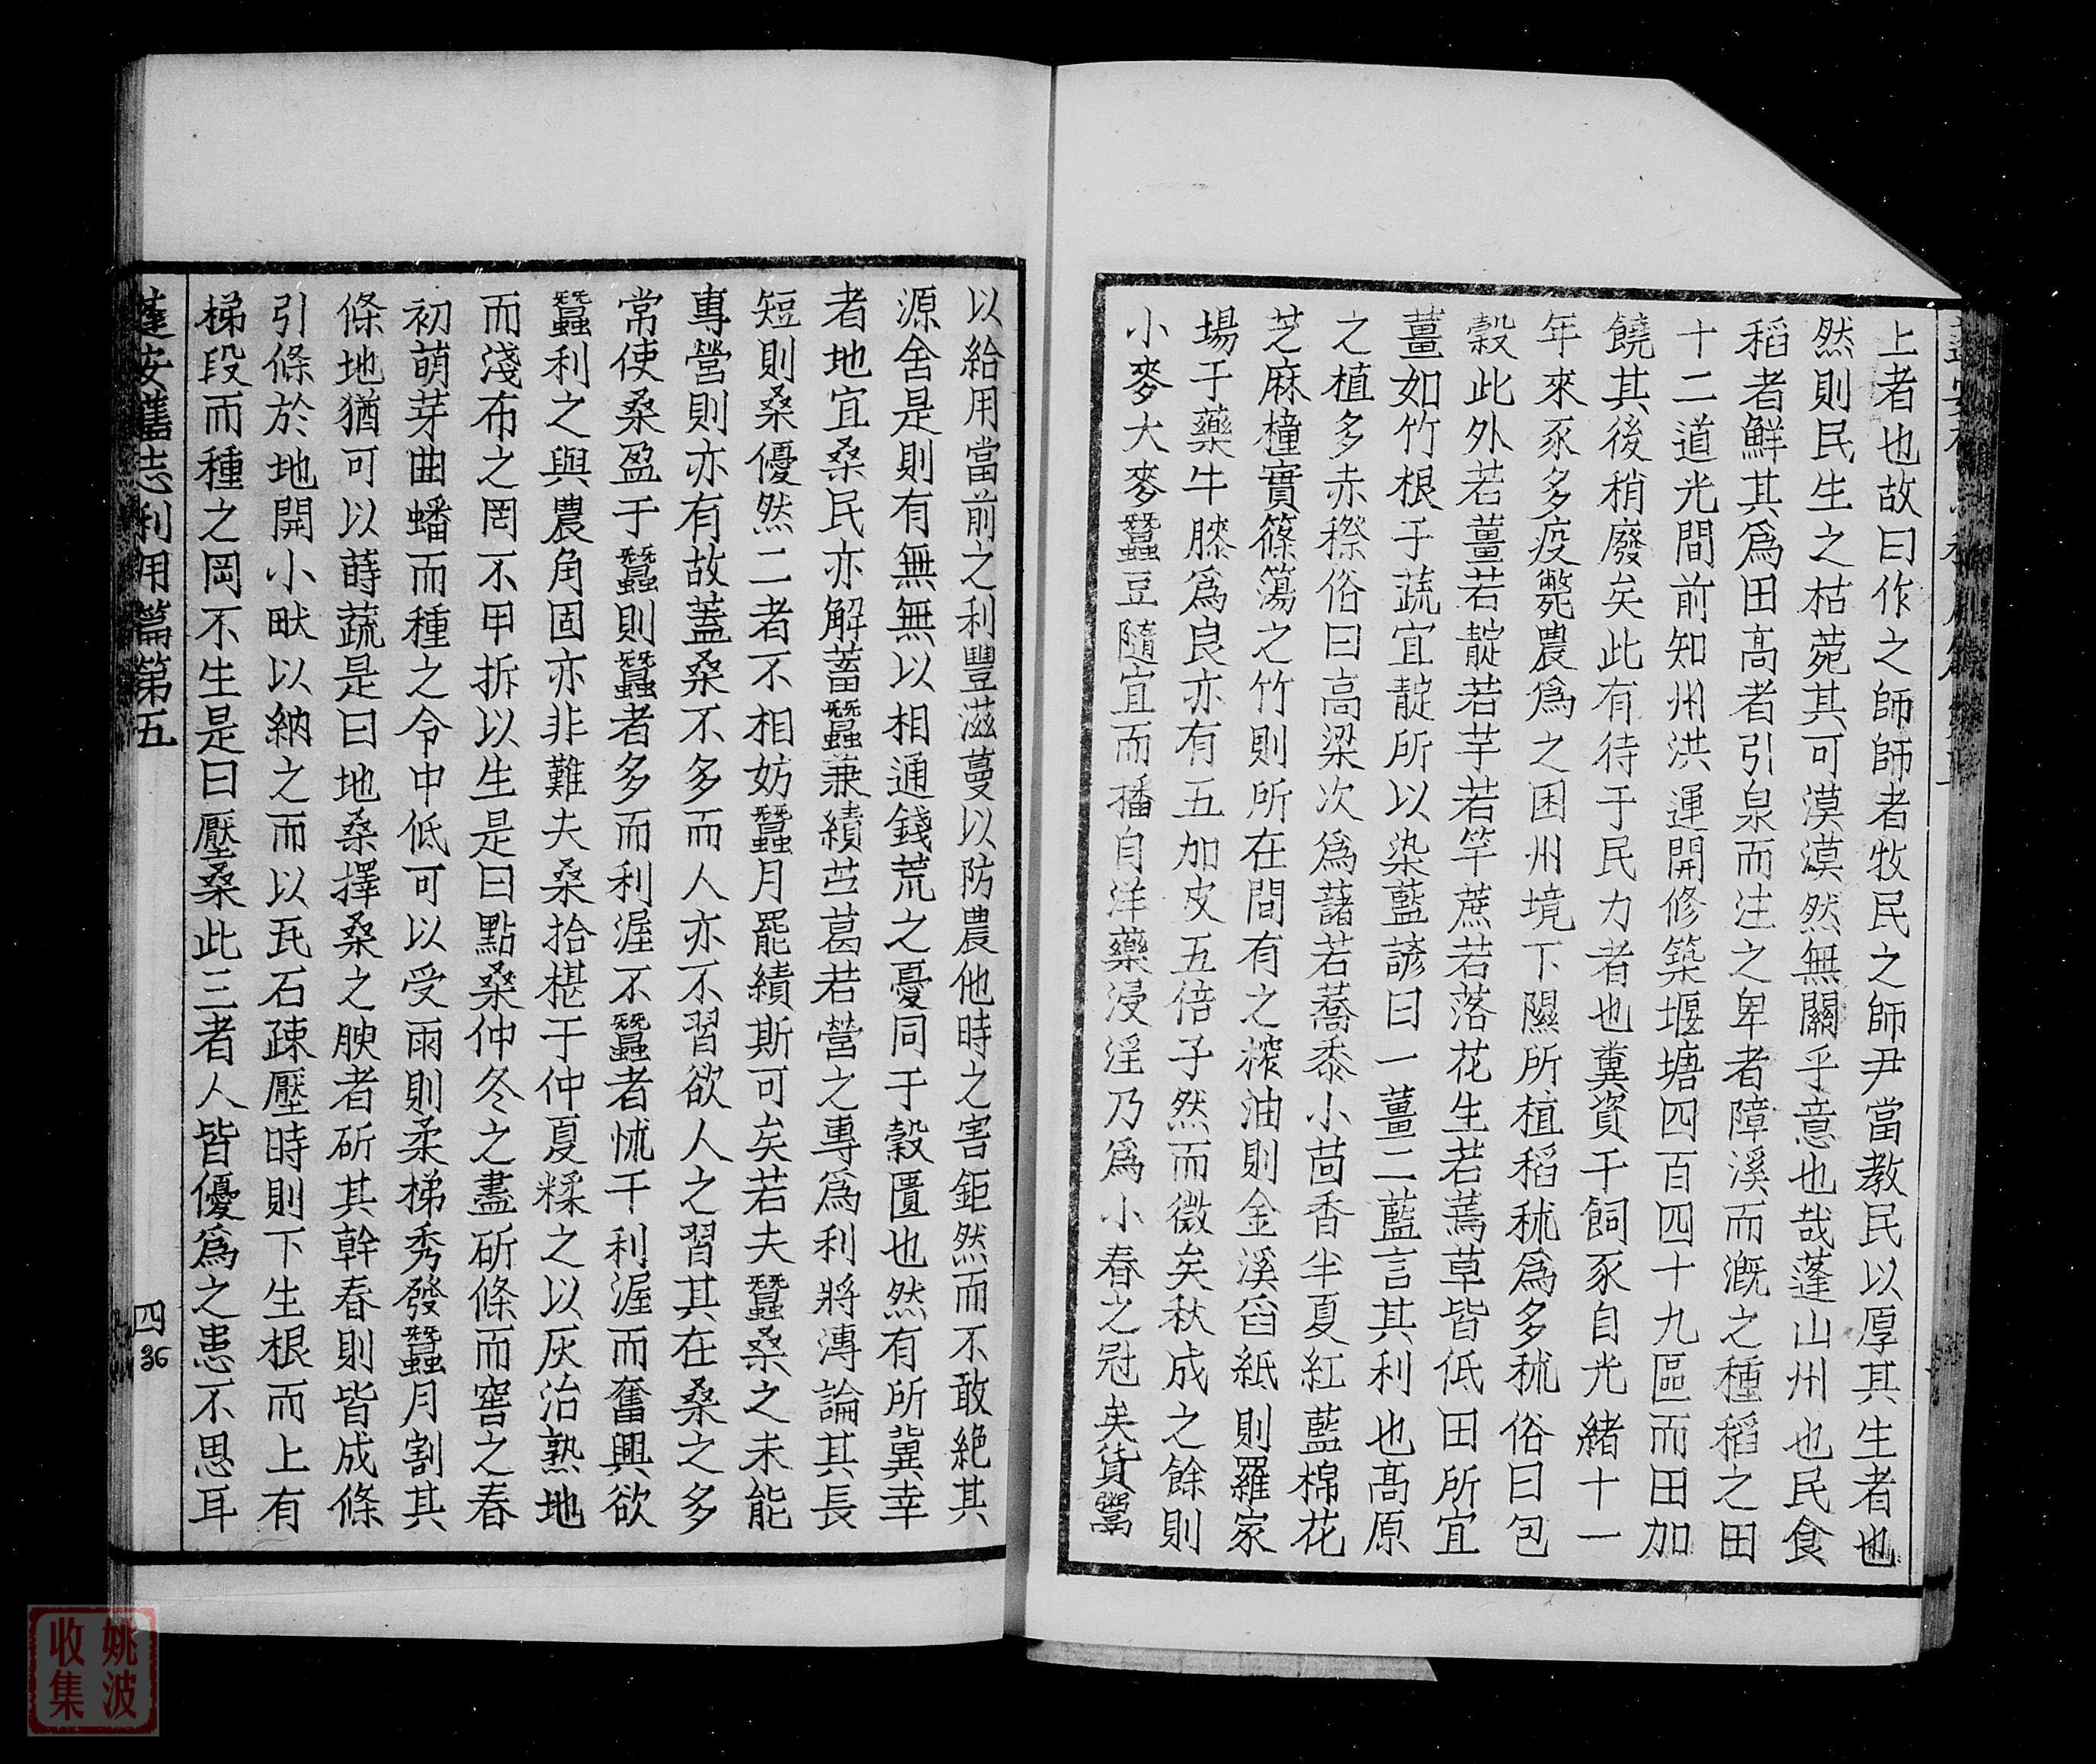 上者也故曰作之師師者牧民之師尹當教民以厚其生者也
然則民生之枯菀其可漠漠然無關乎意也哉蓬山州也民食
稻者鮮其爲田高者引泉而注之卑者障溪而漑之種稻之田
十二道光間前知州洪運開修築堰塘四百四十九區而田加
饒其後稍廢矣此有待于民力者也糞資于飼豕自光緒十一
年來豕多疫斃農爲之困州境下隰所植稻秫爲多秫俗曰包
穀此外若薑若靛若芋若竿蔗若落花生若蔫草皆低田所宜
薑如竹根于蔬宜靛所以染藍諺曰一薑二藍言其利也高原
之植多赤穄俗曰高梁次爲藷若蕎黍小茴香半夏紅藍棉花
芝麻橦實篠簜之竹則所在間有之榨油則金溪舀紙則羅家
場于藥牛膝爲良亦有五加皮五倍子然而微矣秋成之餘則
小麥大麥蠶豆隨宜而播自洋藥浸淫乃爲小春之冠矣貨鬻
以給用當前之利豐滋蔓以防農他時之害鉅然而不敢絶其
源舍是則有無無以相通錢荒之憂同于穀匱也然有所冀幸
者地宜桑民亦解蓄蠶蒹績苎葛若營之專爲利將溥論其長
短則桑優然二者不相妨蠶月罷績斯可矣若夫蠶桑之未能
專營則亦有故蓋桑不多而人亦不習欲人之習其在桑之多
常使桑盈于蠶則蠶者多而利渥不蠶者怵于利渥而奮興欲
蠶利之與農角固亦非難夫桑拾椹于仲夏糅之以灰治熟地
而淺布之罔不甲拆以生是曰點桑仲冬之盡斫條而窖之春
初萌芽曲蟠而種之令中低可以受雨則柔梯秀發蠶月割其
條地猶可以蒔蔬是曰地桑擇桑之腴者斫其幹春則皆成條
引條於地開小畎以納之而以瓦石疎壓時則下生根而上有
梯段而種之罔不生是曰壓桑此三者人皆優爲之患不思耳
蓬安舊志利用篇第五
四
36
姚波
收集